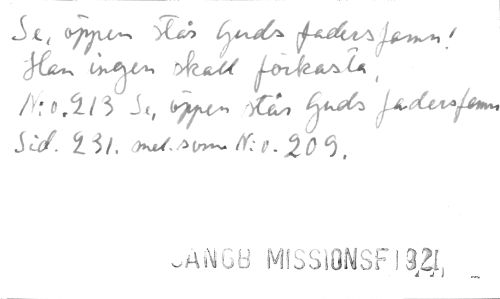 Se, öppen står Guds fadersfamn!
Han ingen skall förkasta,
N:o. 213 Se, öppen står Guds fadersfamn
Sid. 231. mel. som N:o. 209.
SÅNGB MISSIONSF 1921,